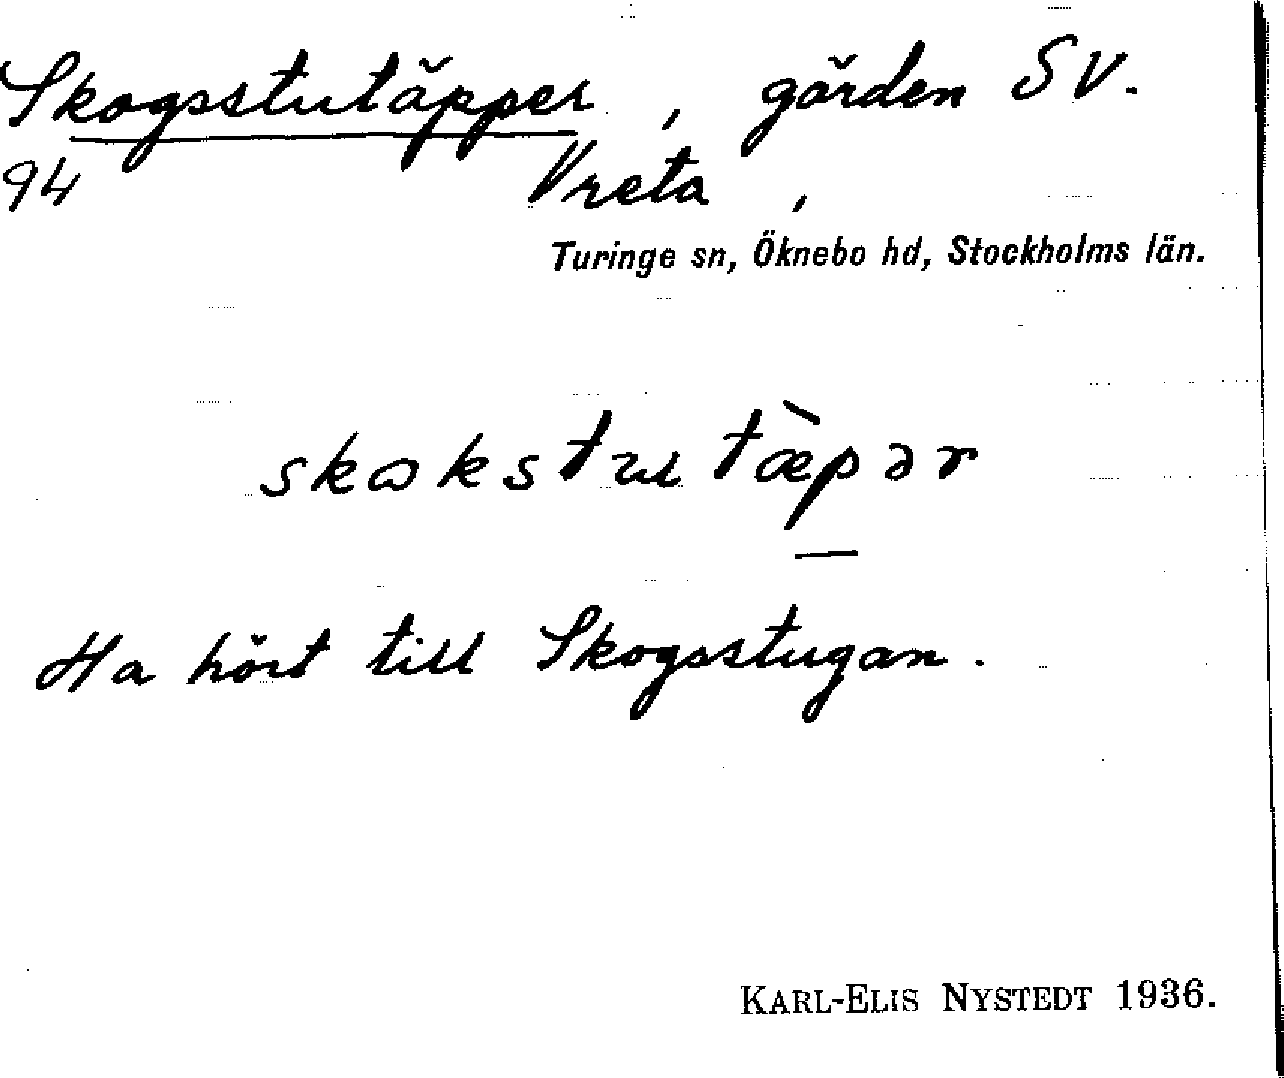 Skogsstutäpper, gärden SV.
94 Vreta,
Turinge sn, Öknebo hd, Stockholms län.
skɷkstutæ̀pər
Ha hört till Skogsstugan.
KARL-ELIS NYSTEDT 1936.